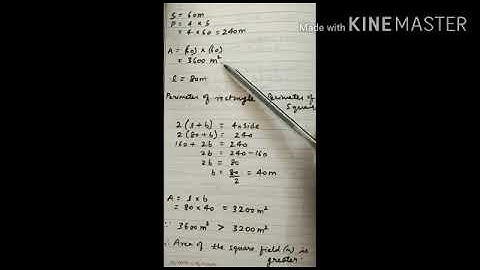 Made with KINEMASTER
S = 60m
P = 4 × S
= 4 × 60 = 240m
A = (60) × (60)
= 3600 m²
l = 80m
Perimeter of rectangle = Perimeter of Square
2 (l + b) = 4 × side
2 (80 + b) = 240
160 + 2b = 240
2b = 240 - 160
2b = 80
b = 80/2 = 40m
A = l × b
= 80 × 40 = 3200m²
∵ 3600m² > 3200m²
∴ Area of the square field (a) is greater.